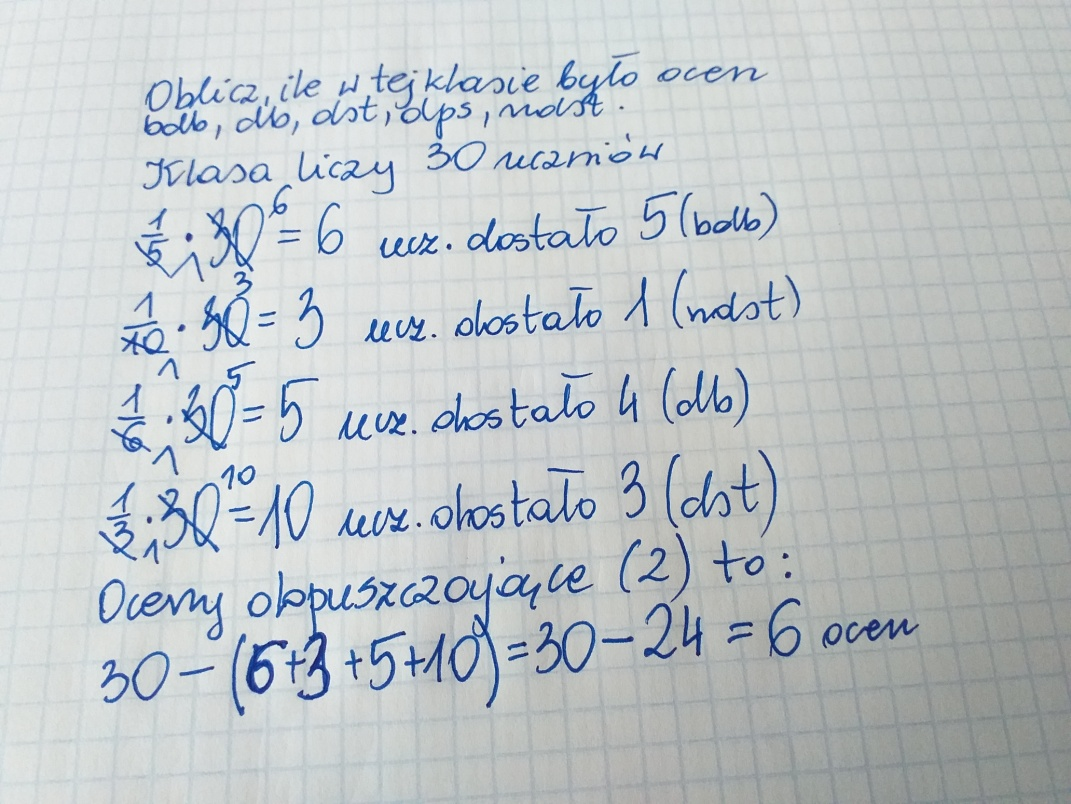 Oblicz, ile w tej klasie było ocen
bdb, db, dst, dps, ndst.
Klasa liczy 30 uczniów
1/5 · 30 6 = 6 ucz. dostało 5 (bdb)
1
1/10 · 30 3 = 3 ucz. dostało 1 (ndst)
1
1/6 · 30 5 = 5 ucz. dostało 4 (db)
1
1/3 · 30 10 = 10 ucz. dostało 3 (dst)
1
Oceny dopuszczające (2) to:
30 - (6+3+5+10) = 30 - 24 = 6 ocen